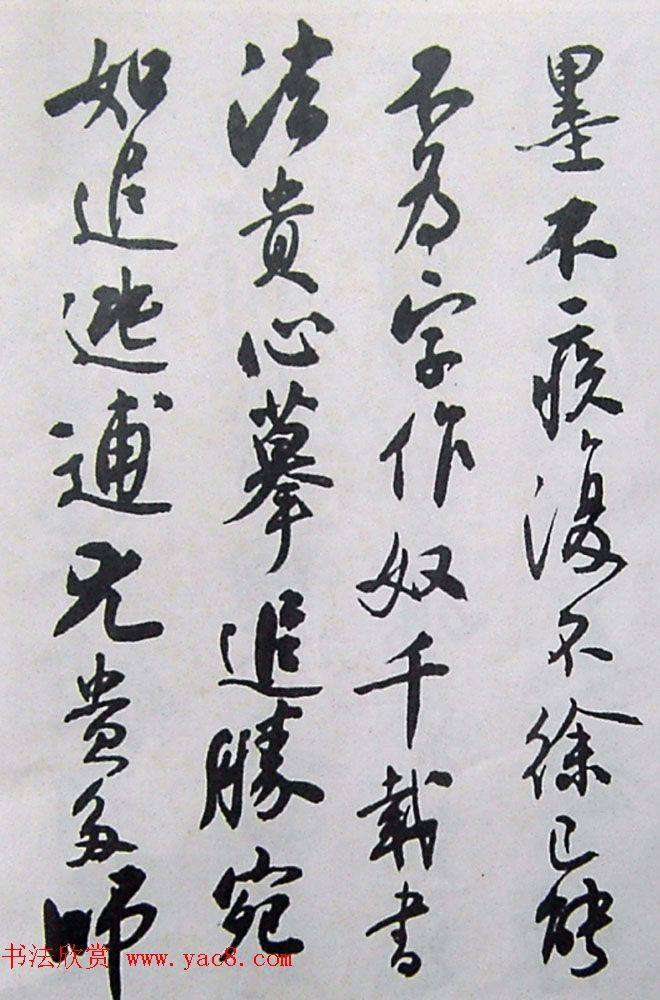 墨不疾復不徐已能
不为字作奴千載書
法貴心摹追勝宛
如追逃逋尤貴多師
书法欣赏 www.yac8.com